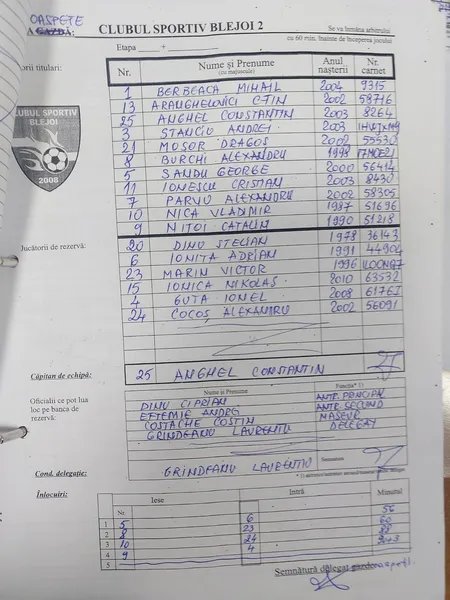 OASPETE
CLUBUL SPORTIV BLEJOI 2
Se va înmâna arbitrului
cu 60 min. înainte de începerea jocului
Etapa ____ + ____
Jucătorii titulari:
Nr. Nume și Prenume (cu majuscule) Anul nașterii Nr. carnet
1 BERBEACA MIHAIL 2004 9315
13 ARANGHELOVICI CTIN 2002 58716
25 ANGHEL CONSTANTIN 2003 8264
3 STANCIU ANDREI 2003
21 MOSOR DRAGOȘ 2002 55530
8 BURCHI ALEXANDRU 1998
5 SANDU GEORGE 2000 56414
11 IONESCU CRISTIAN 2003 8430
7 PARVU ALEXANDRU 2002 58305
10 NICA VLADIMIR 1987 51696
9 NITOI CATALIN 1990 51218
CLUBUL SPORTIV
BLEJOI
2008
Jucătorii de rezervă:
20 DINU STELIAN 1978 36143
6 IONITA ADRIAN 1991 44904
23 MARIN VICTOR 1996
15 IONICA NIKOLAS 2010 63532
4 GUTA IONEL 2008 61761
24 COCOȘ ALEXANDRU 2002 56091
Căpitan de echipă: 25 ANGHEL CONSTANTIN
Oficialii ce pot lua loc pe banca de rezervă:
Nume și Prenume Funcția* 1)
DINU CIPRIAN ANTR. PRINCIPAL
EFTEMIE ANDREI ANTR SECUND
COSTACHE COSTIN MASEUR
GRINDEANU LAURENTIU DELEGAT
Semnatura
Cond. delegație: GRINDEANU LAURENTIU
Înlocuiri:
Iese Intră Minutul
Nr.
1 5 6 56
2 8 23 60
3 10 24
4 9 4
5
Semnătură delegat oaspeti